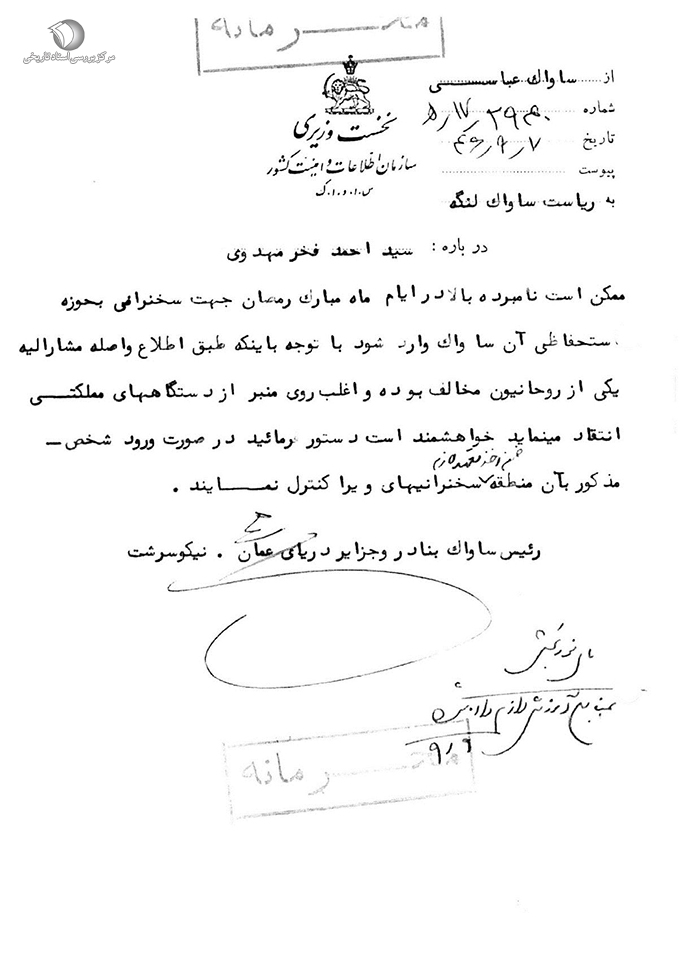 مرکز بررسی اسناد تاریخی
محرمانه
از ساواك عباسی
شماره
تاریخ ۴۶/۹/۷
پیوست
نخست وزیری
سازمان اطلاعات و امنیت کشور
س.ا.و.ا.ک
به ریاست ساواك لنگه
در باره : سید احمد فخر مهدوی
ممکن است نامبرده بالا در ایام ماه مبارك رمضان جهت سخنرانی بحوزه
استحفاظی آن ساواك وارد شود با توجه باینکه طبق اطلاع واصله مشارالیه
یکی از روحانیون مخالف بوده و اغلب روی منبر از دستگاههای مملکتی
انتقاد مینماید خواهشمند است دستور فرمائید در صورت ورود شخص –
مذکور بآن منطقه سخنرانیهای ویرا کنترل نمایند .
رئیس ساواك بنادر و جزایر دریای عمان . نیکوسرشت
محرمانه